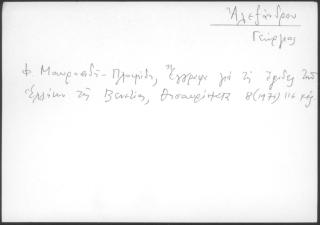 Ἀλεξάνδρου
Γεώργιος
Φ. Μαυροειδῆ - Πλουμίδη, Ἔγγραφα γιὰ τὶς ἔριδες τῶν
Ἑλλήνων τῆς Βενετίας, Θησαυρίσματα 8 (1971) 116